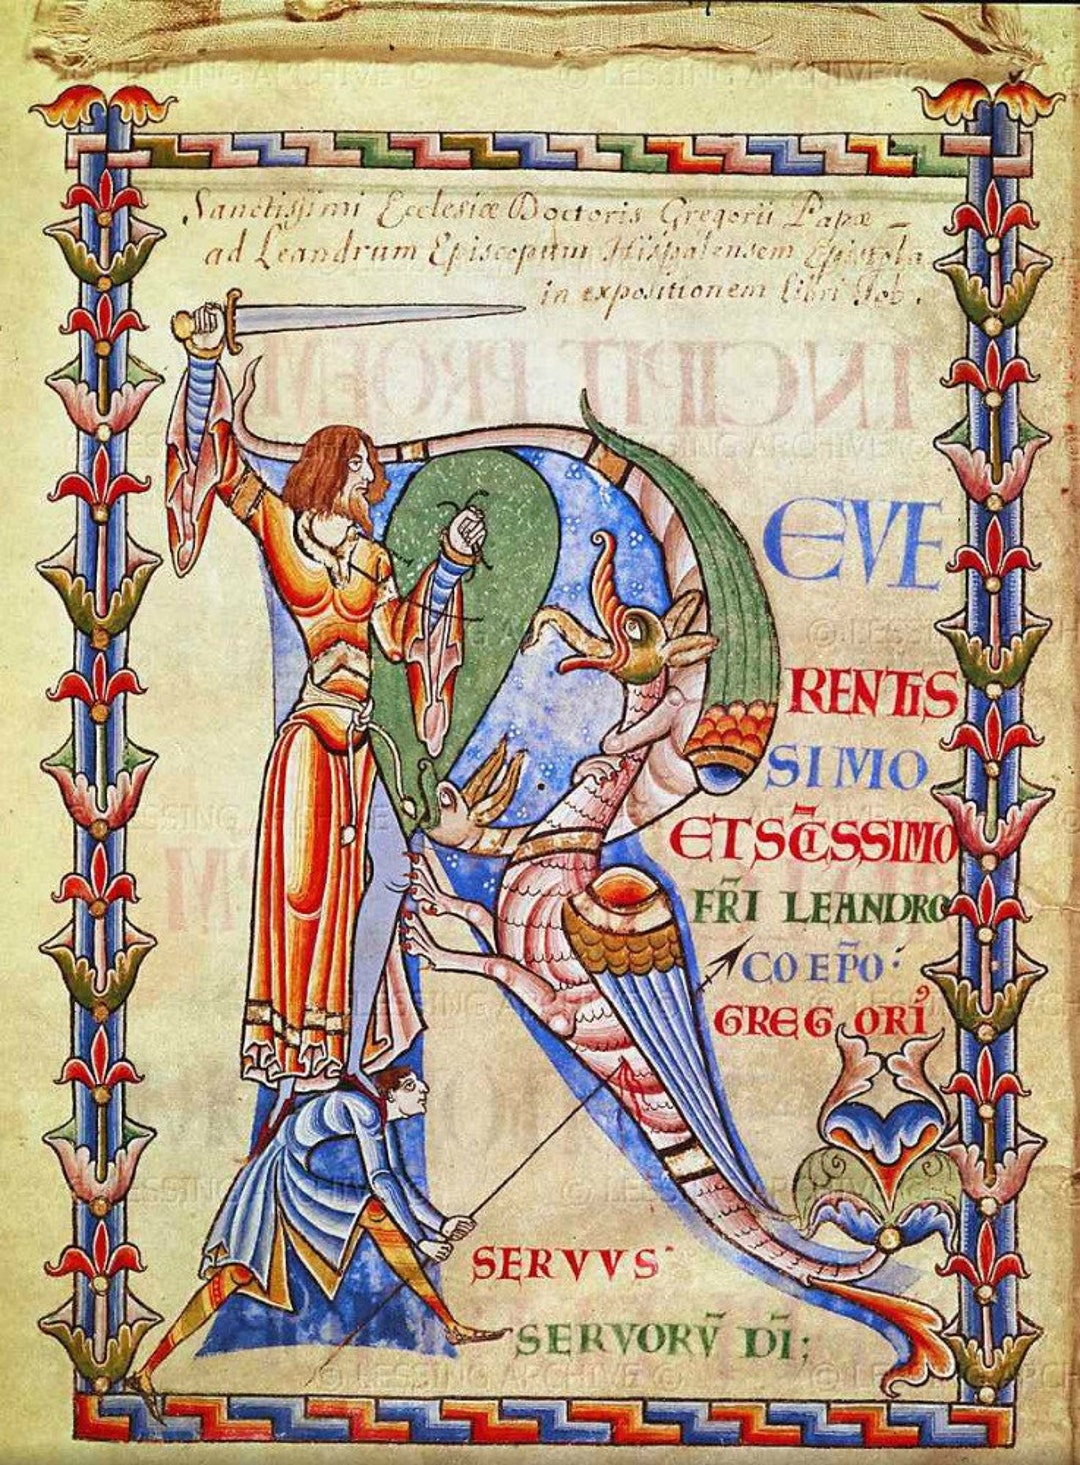 Sanctissimi Ecclesiæ Doctoris Gregorii Papæ
ad Leandrum Episcopum Hispalensem Epistola
in expositionem libri Job.
INCIPIT PROEM
R EVE
RENTIS
SIMO
ET SC̄ISSIMO
FR̄I LEANDRO
COEP̄O
GREGORI
SERVVS
SERVORV̄ DĪ;
© LESSING ARCHIVE ©